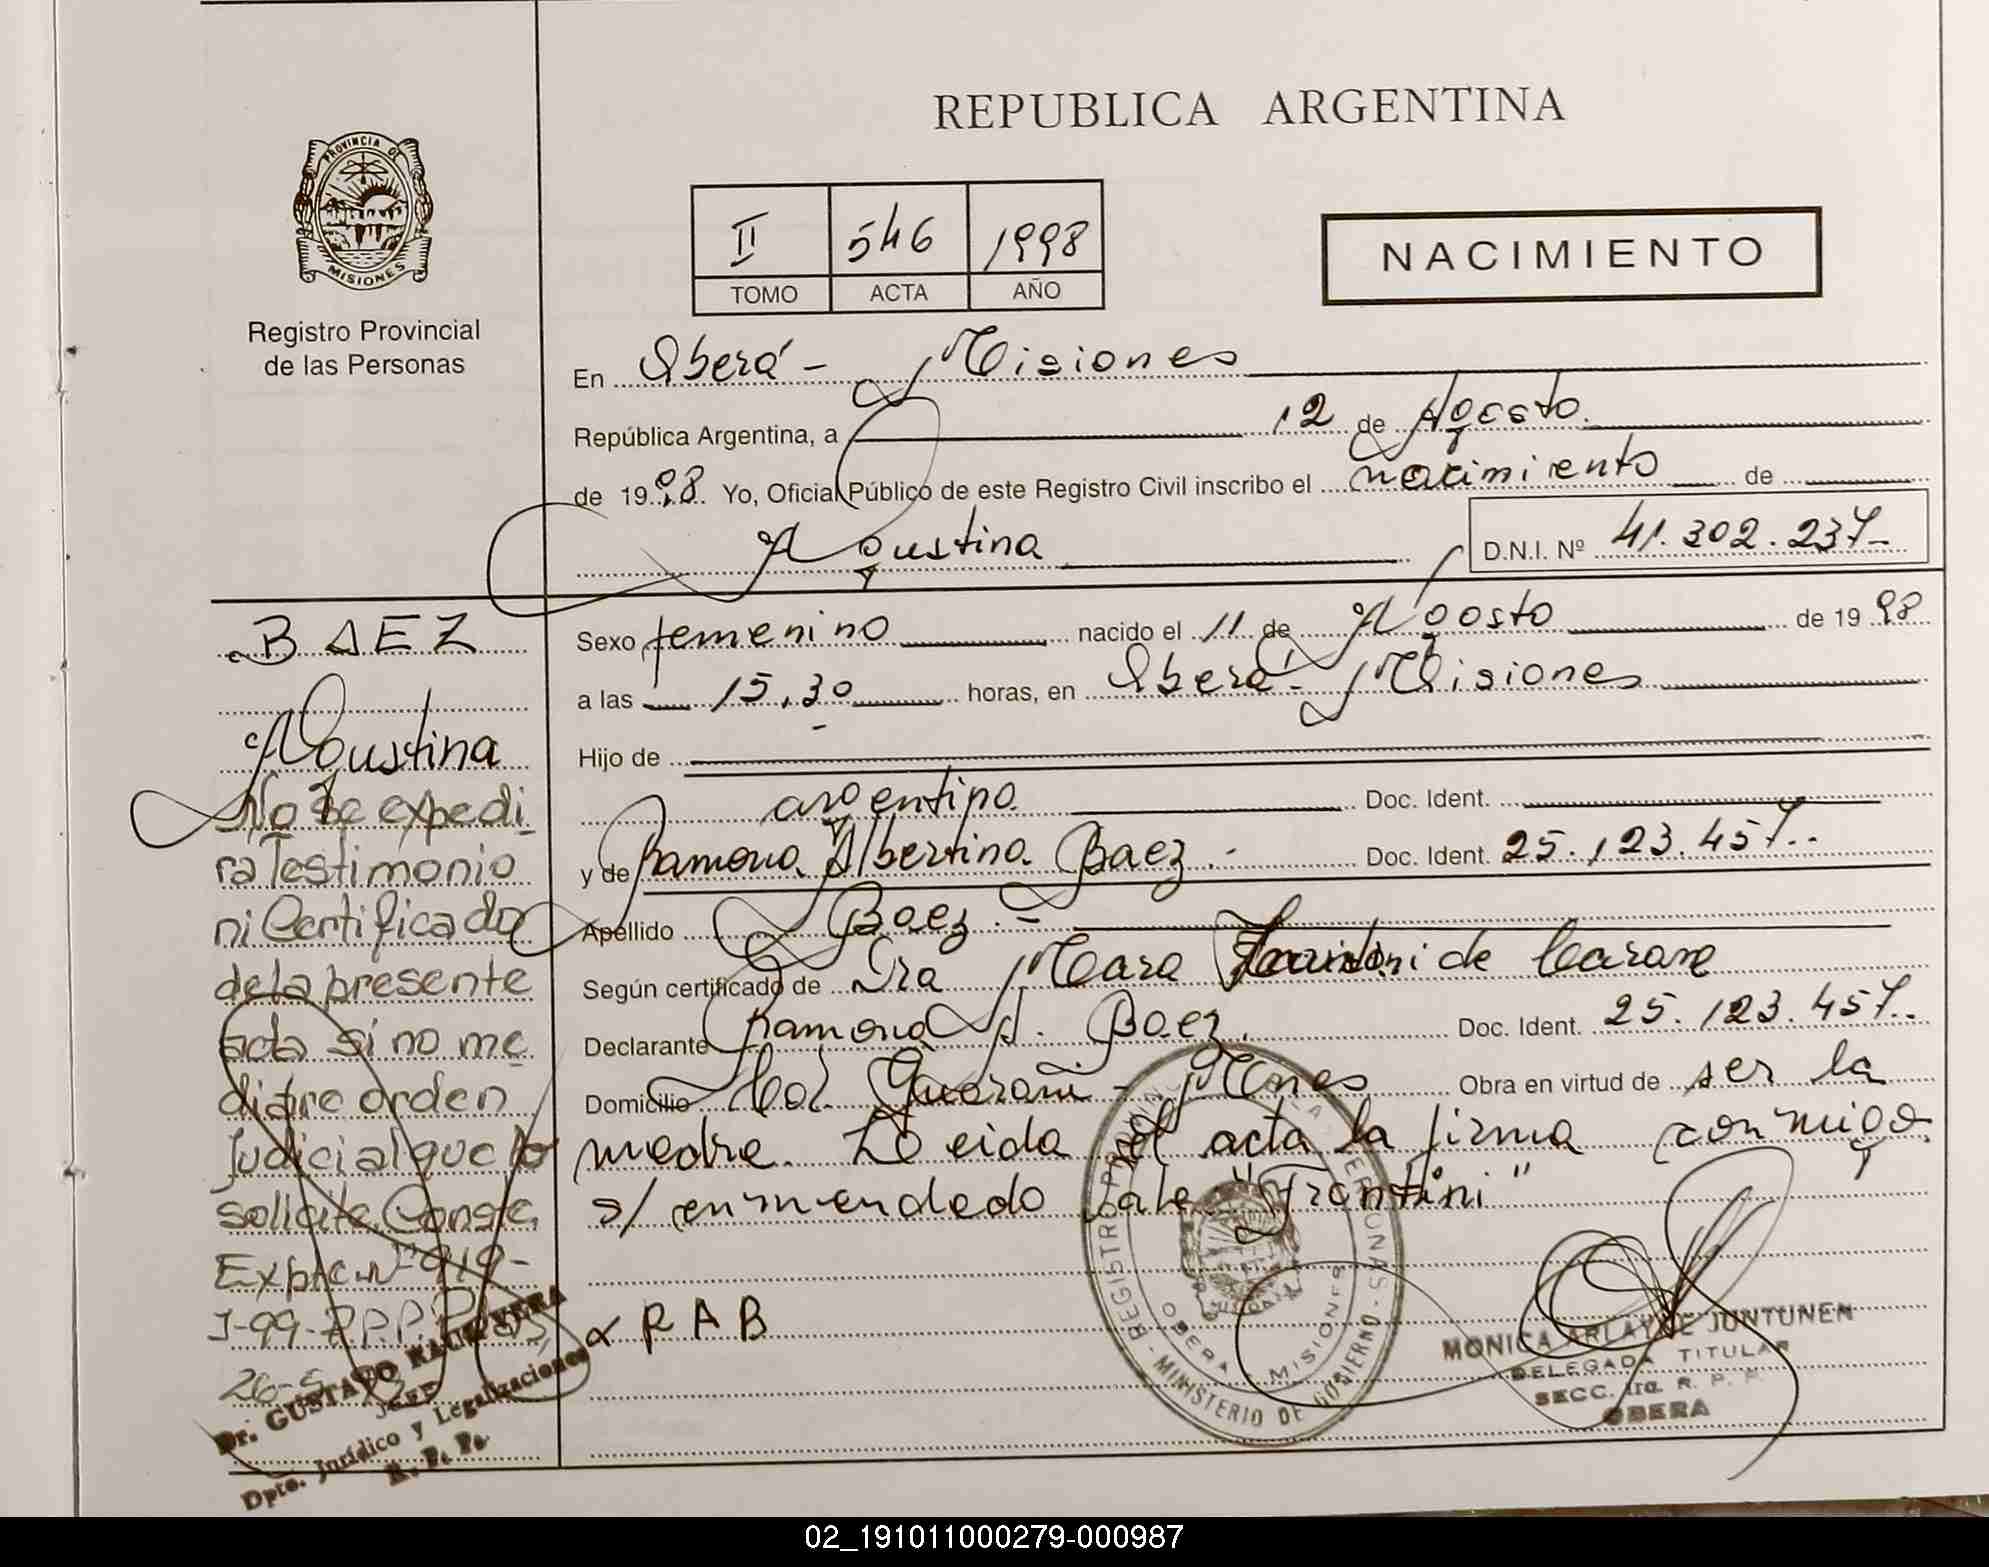 REPUBLICA ARGENTINA
PROVINCIA DE
MISIONES
Registro Provincial
de las Personas
II 546 1998
TOMO ACTA AÑO
NACIMIENTO
En Oberá - Misiones
República Argentina, a 12 de Agosto
de 1998 Yo, Oficial Público de este Registro Civil inscribo el nacimiento de
Agustina D.N.I. Nº 41.302.237-
BAEZ
Agustina
No Se expedi
ra Testimonio
ni Certificado
de la presente
acta si no me
diare orden
Judicial que lo
solicite. Conste.
Expte. Nº 919-
J-99-R.P.P.
26-5-
Dr. GUSTAVO RAUL VERA
JEFE
Dpto. Jurídico y Legalizaciones
R. P. P.
Sexo femenino nacido el 11 de Agosto de 1998
a las 15,30 horas, en Oberá - Misiones
Hijo de
argentino. Doc. Ident.
y de Ramona Albertina Baez.- Doc. Ident. 25.123.457.-
Apellido Baez.-
Según certificado de Dra Mara de
Declarante Ramona A. Baez. Doc. Ident. 25.123.457.-
Domicilio Col. Guarani - Mnes Obra en virtud de ser la
madre. Leida el acta la firma conmigo
s/ enmendado vale "Frontini"
RAB
REGISTRO PROVINCIAL DE LAS PERSONAS - MINISTERIO DE GOBIERNO
OBERA MISIONES
MONICA ARLAYNE JUNTUNEN
DELEGADA TITULAR
SECC. 1ra. R. P. P.
OBERA
02_191011000279-000987